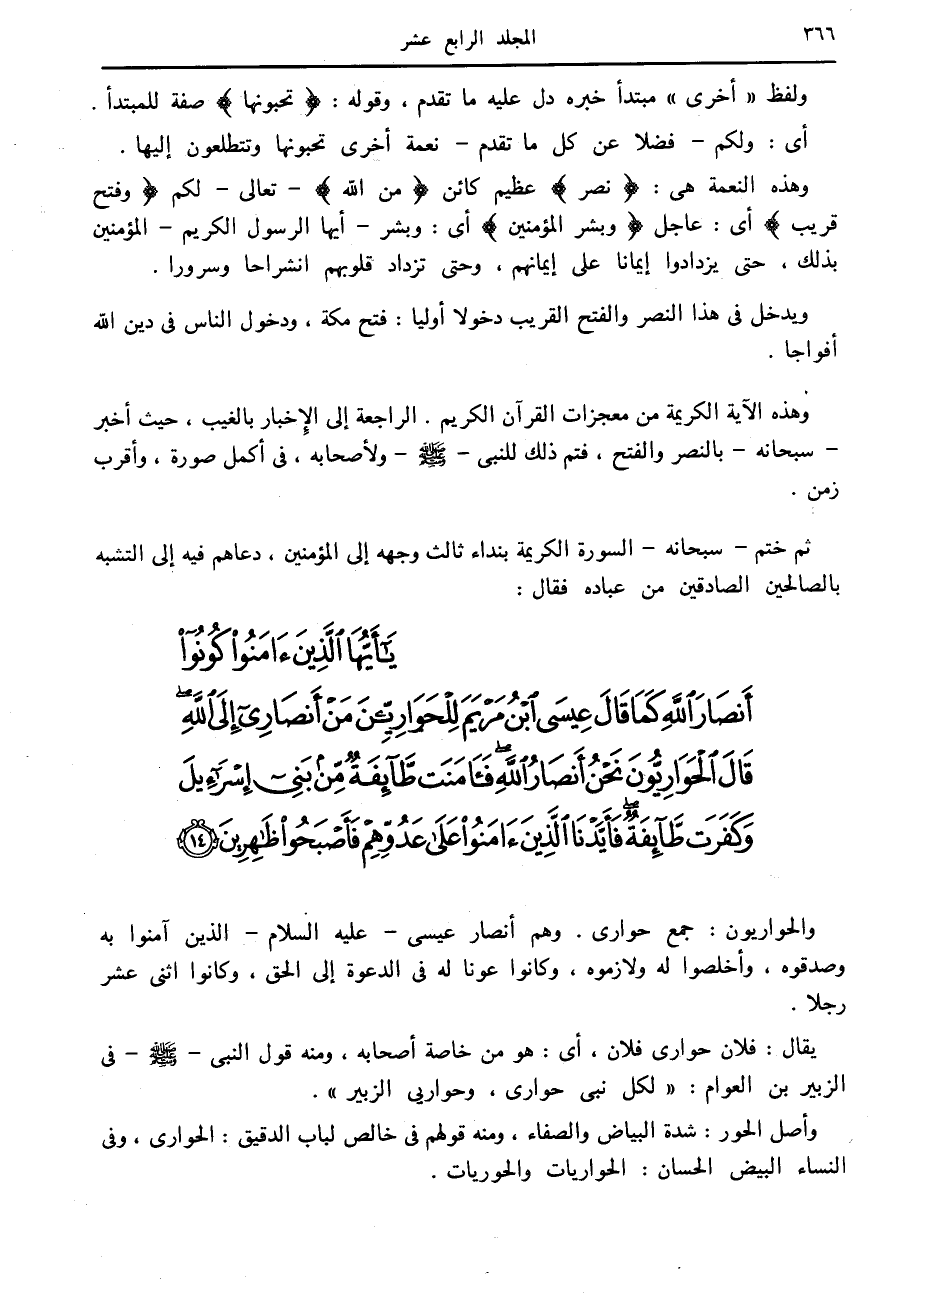 ٣٦٦
المجلد الرابع عشر
ولفظ « أخرى » مبتدأ خبره دل عليه ما تقدم ، وقوله : ﴿ تحبونها ﴾ صفة للمبتدأ .
أى : ولكم – فضلا عن كل ما تقدم – نعمة أخرى تحبونها وتتطلعون إليها .
وهذه النعمة هى : ﴿ نصر ﴾ عظيم كائن ﴿ من الله ﴾ – تعالى – لكم ﴿ وفتح
قريب ﴾ أى : عاجل ﴿ وبشر المؤمنين ﴾ أى : وبشر – أيها الرسول الكريم – المؤمنين
بذلك ، حتى يزدادوا إيمانا على إيمانهم ، وحتى تزداد قلوبهم انشراحا وسرورا .
ويدخل فى هذا النصر والفتح القريب دخولا أوليا : فتح مكة ، ودخول الناس فى دين الله
أفواجا .
وهذه الآية الكريمة من معجزات القرآن الكريم . الراجعة إلى الإِخبار بالغيب ، حيث أخبر
– سبحانه – بالنصر والفتح ، فتم ذلك للنبى – ﷺ – ولأصحابه ، فى أكمل صورة ، وأقرب
زمن .
ثم ختم – سبحانه – السورة الكريمة بنداء ثالث وجهه إلى المؤمنين ، دعاهم فيه إلى التشبه
بالصالحين الصادقين من عباده فقال :
يَٰٓأَيُّهَا ٱلَّذِينَ ءَامَنُوا۟ كُونُوٓا۟
أَنصَارَ ٱللَّهِ كَمَا قَالَ عِيسَى ٱبْنُ مَرْيَمَ لِلْحَوَارِيِّـۧنَ مَنْ أَنصَارِىٓ إِلَى ٱللَّهِ ۖ
قَالَ ٱلْحَوَارِيُّونَ نَحْنُ أَنصَارُ ٱللَّهِ ۖ فَـَٔامَنَت طَّآئِفَةٌ مِّنۢ بَنِىٓ إِسْرَٰٓءِيلَ
وَكَفَرَت طَّآئِفَةٌ ۖ فَأَيَّدْنَا ٱلَّذِينَ ءَامَنُوا۟ عَلَىٰ عَدُوِّهِمْ فَأَصْبَحُوا۟ ظَٰهِرِينَ ١٤
والحواريون : جمع حوارى . وهم أنصار عيسى – عليه السلام – الذين آمنوا به
وصدقوه ، وأخلصوا له ولازموه ، وكانوا عونا له فى الدعوة إلى الحق ، وكانوا اثنى عشر
رجلا .
يقال : فلان حوارى فلان ، أى : هو من خاصة أصحابه ، ومنه قول النبى – ﷺ – فى
الزبير بن العوام : « لكل نبى حوارى ، وحواريي الزبير » .
وأصل الحور : شدة البياض والصفاء ، ومنه قولهم فى خالص لباب الدقيق : الحوارى ، وفى
النساء البيض الحسان : الحواريات والحوريات .